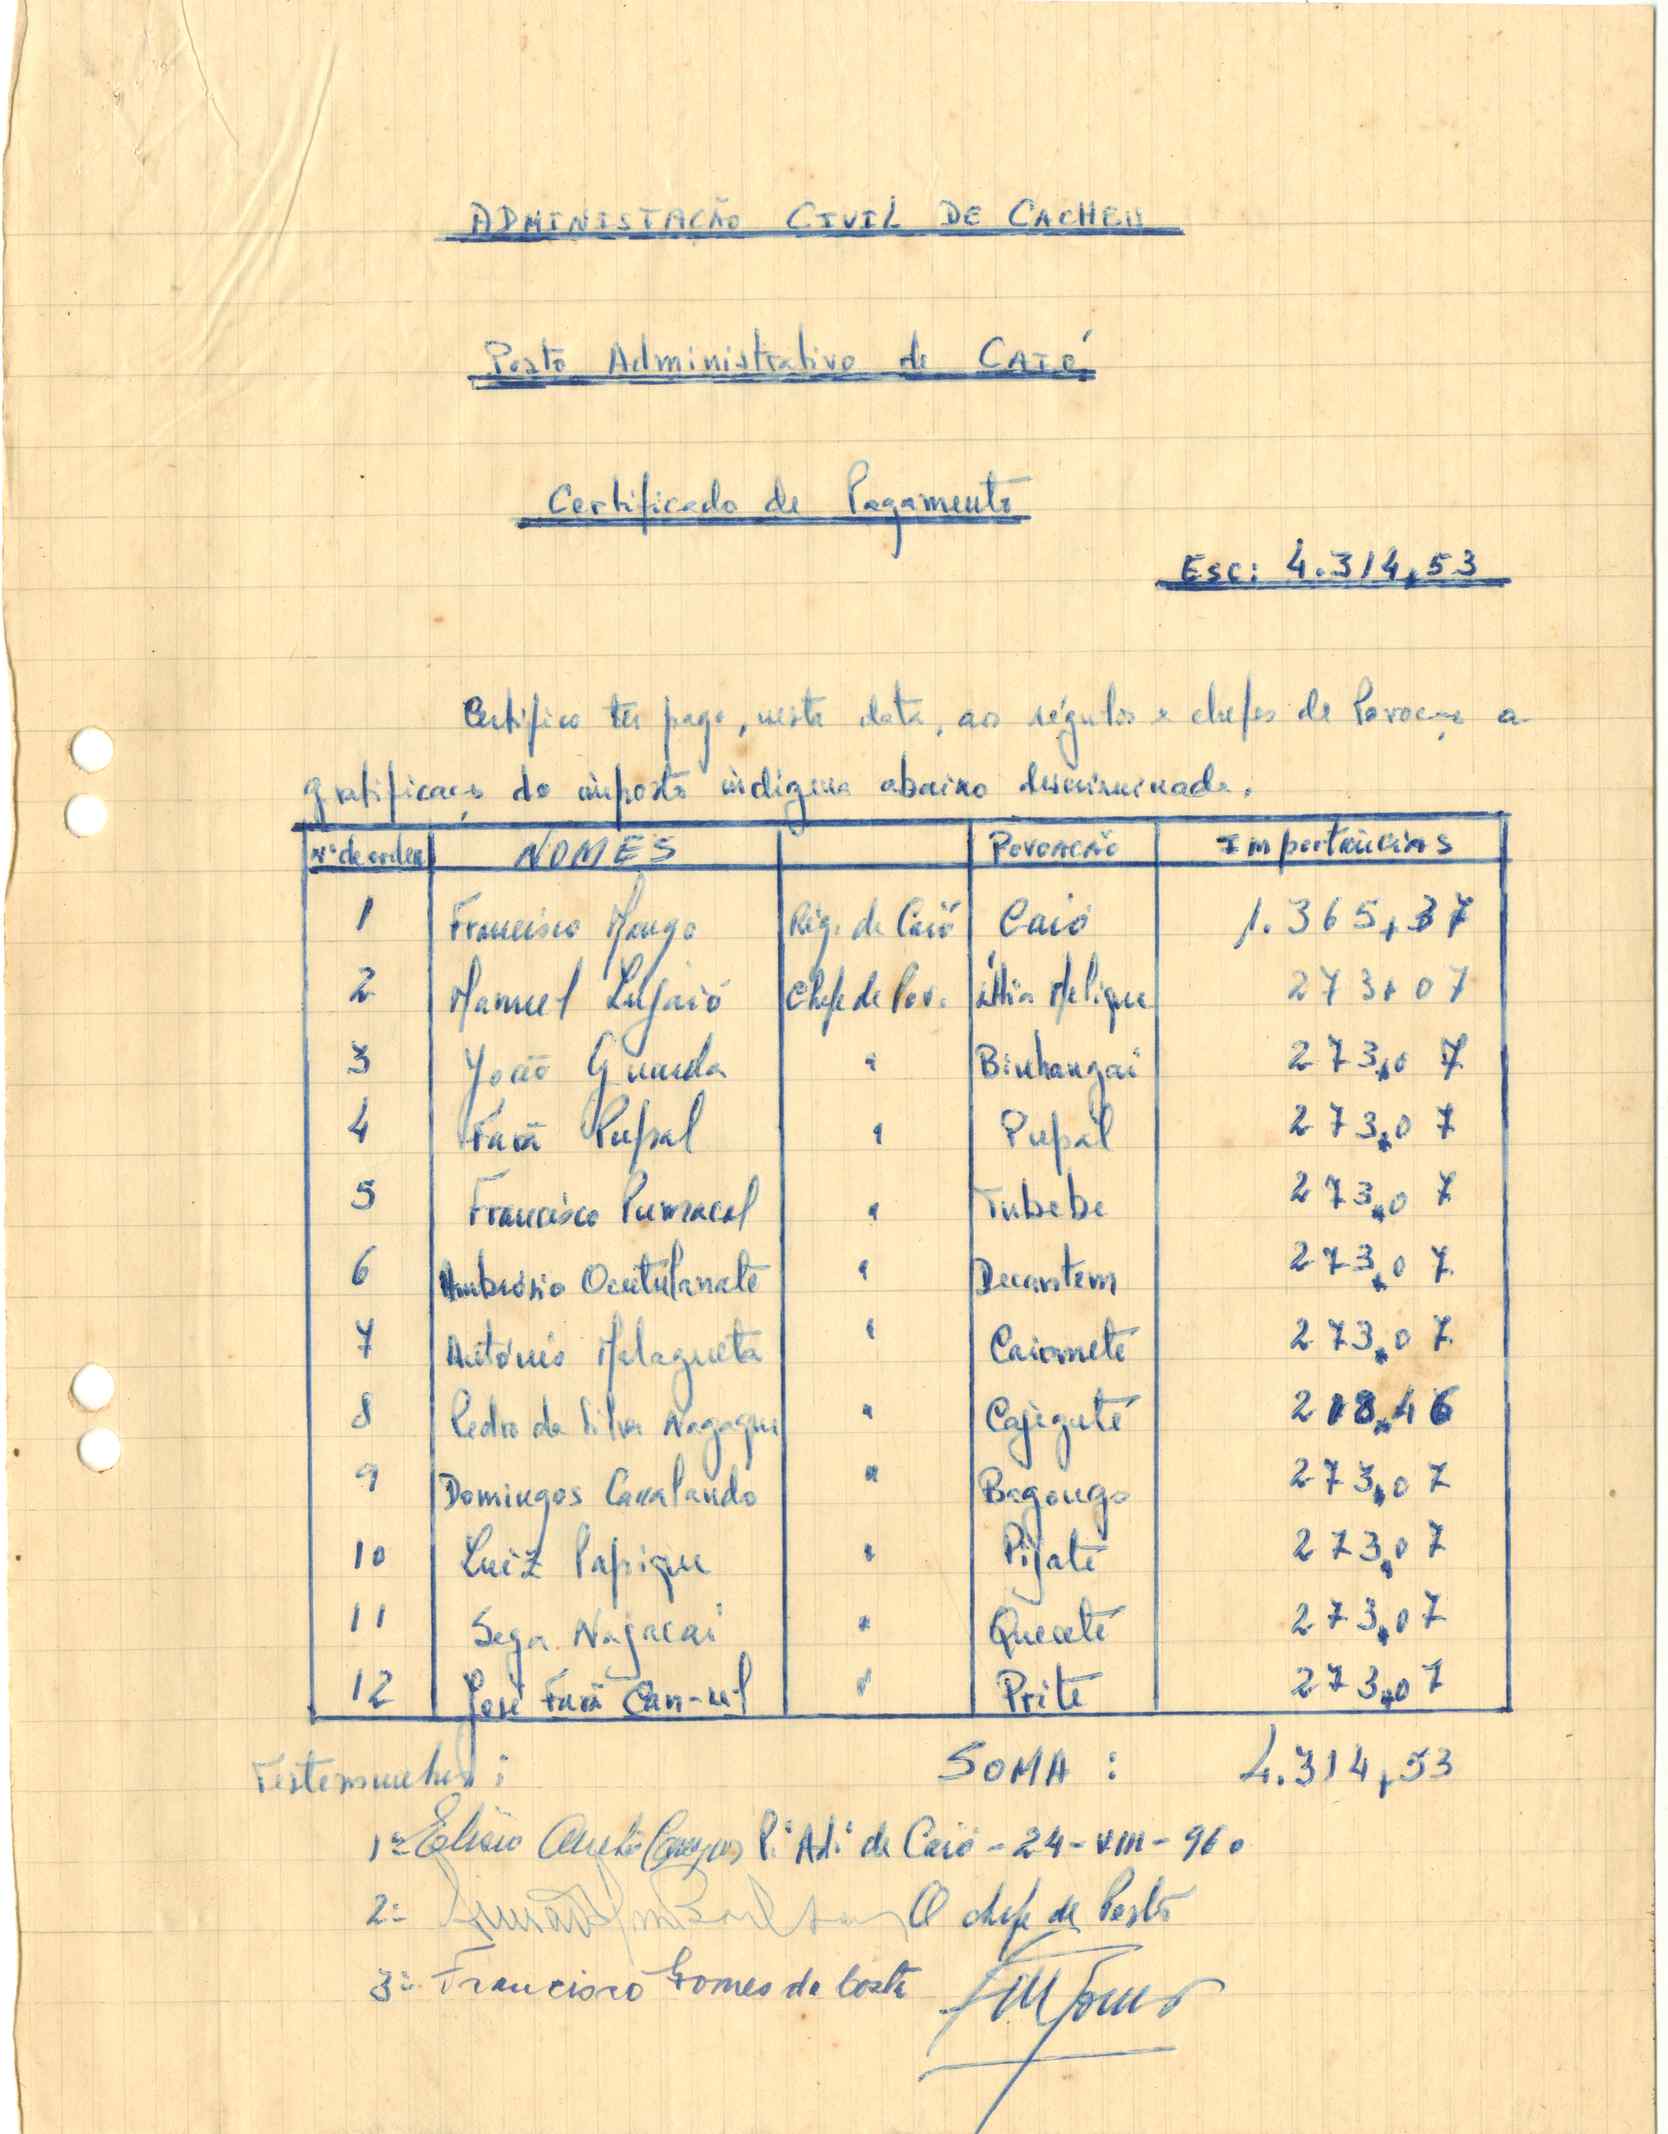 ADMINISTAÇÃO CIVIL DE CACHEU
Posto Administrativo de CAIÓ
Certificado de Pagamento
Esc: 4.314,53
Certifico ter pago, nesta data, aos régulos e chefes de Povoação a
gratificação do imposto indígena abaixo descriminada.
Nº de ordem NOMES POVOAÇÃO Importâncias
1 Francisco Mango Rég. de Caió Caió 1.365,37
2 Manuel Lujaió Chefe de Pov. Melique 273,07
3 João Guarda " Binhangai 273,07
4 Farã Pupal " Pupal 273,07
5 Francisco " Tubebe 273,07
6 Ambrósio " 273,07
7 António Malagueta " Caiomete 273,07
8 Pedro da Silva " Cajegute 218,46
9 Domingos Cavalando " Bagongo 273,07
10 Luiz Papique " Pijate 273,07
11 Sega Nagacai " Quecete 273,07
12 José Farã Can-ul " Prite 273,07
Testemunhas: SOMA: 4.314,53
1ª P. Ad. de Caió - 24-VIII-960
2ª O chefe de Posto
3ª Francisco Gomes da Costa